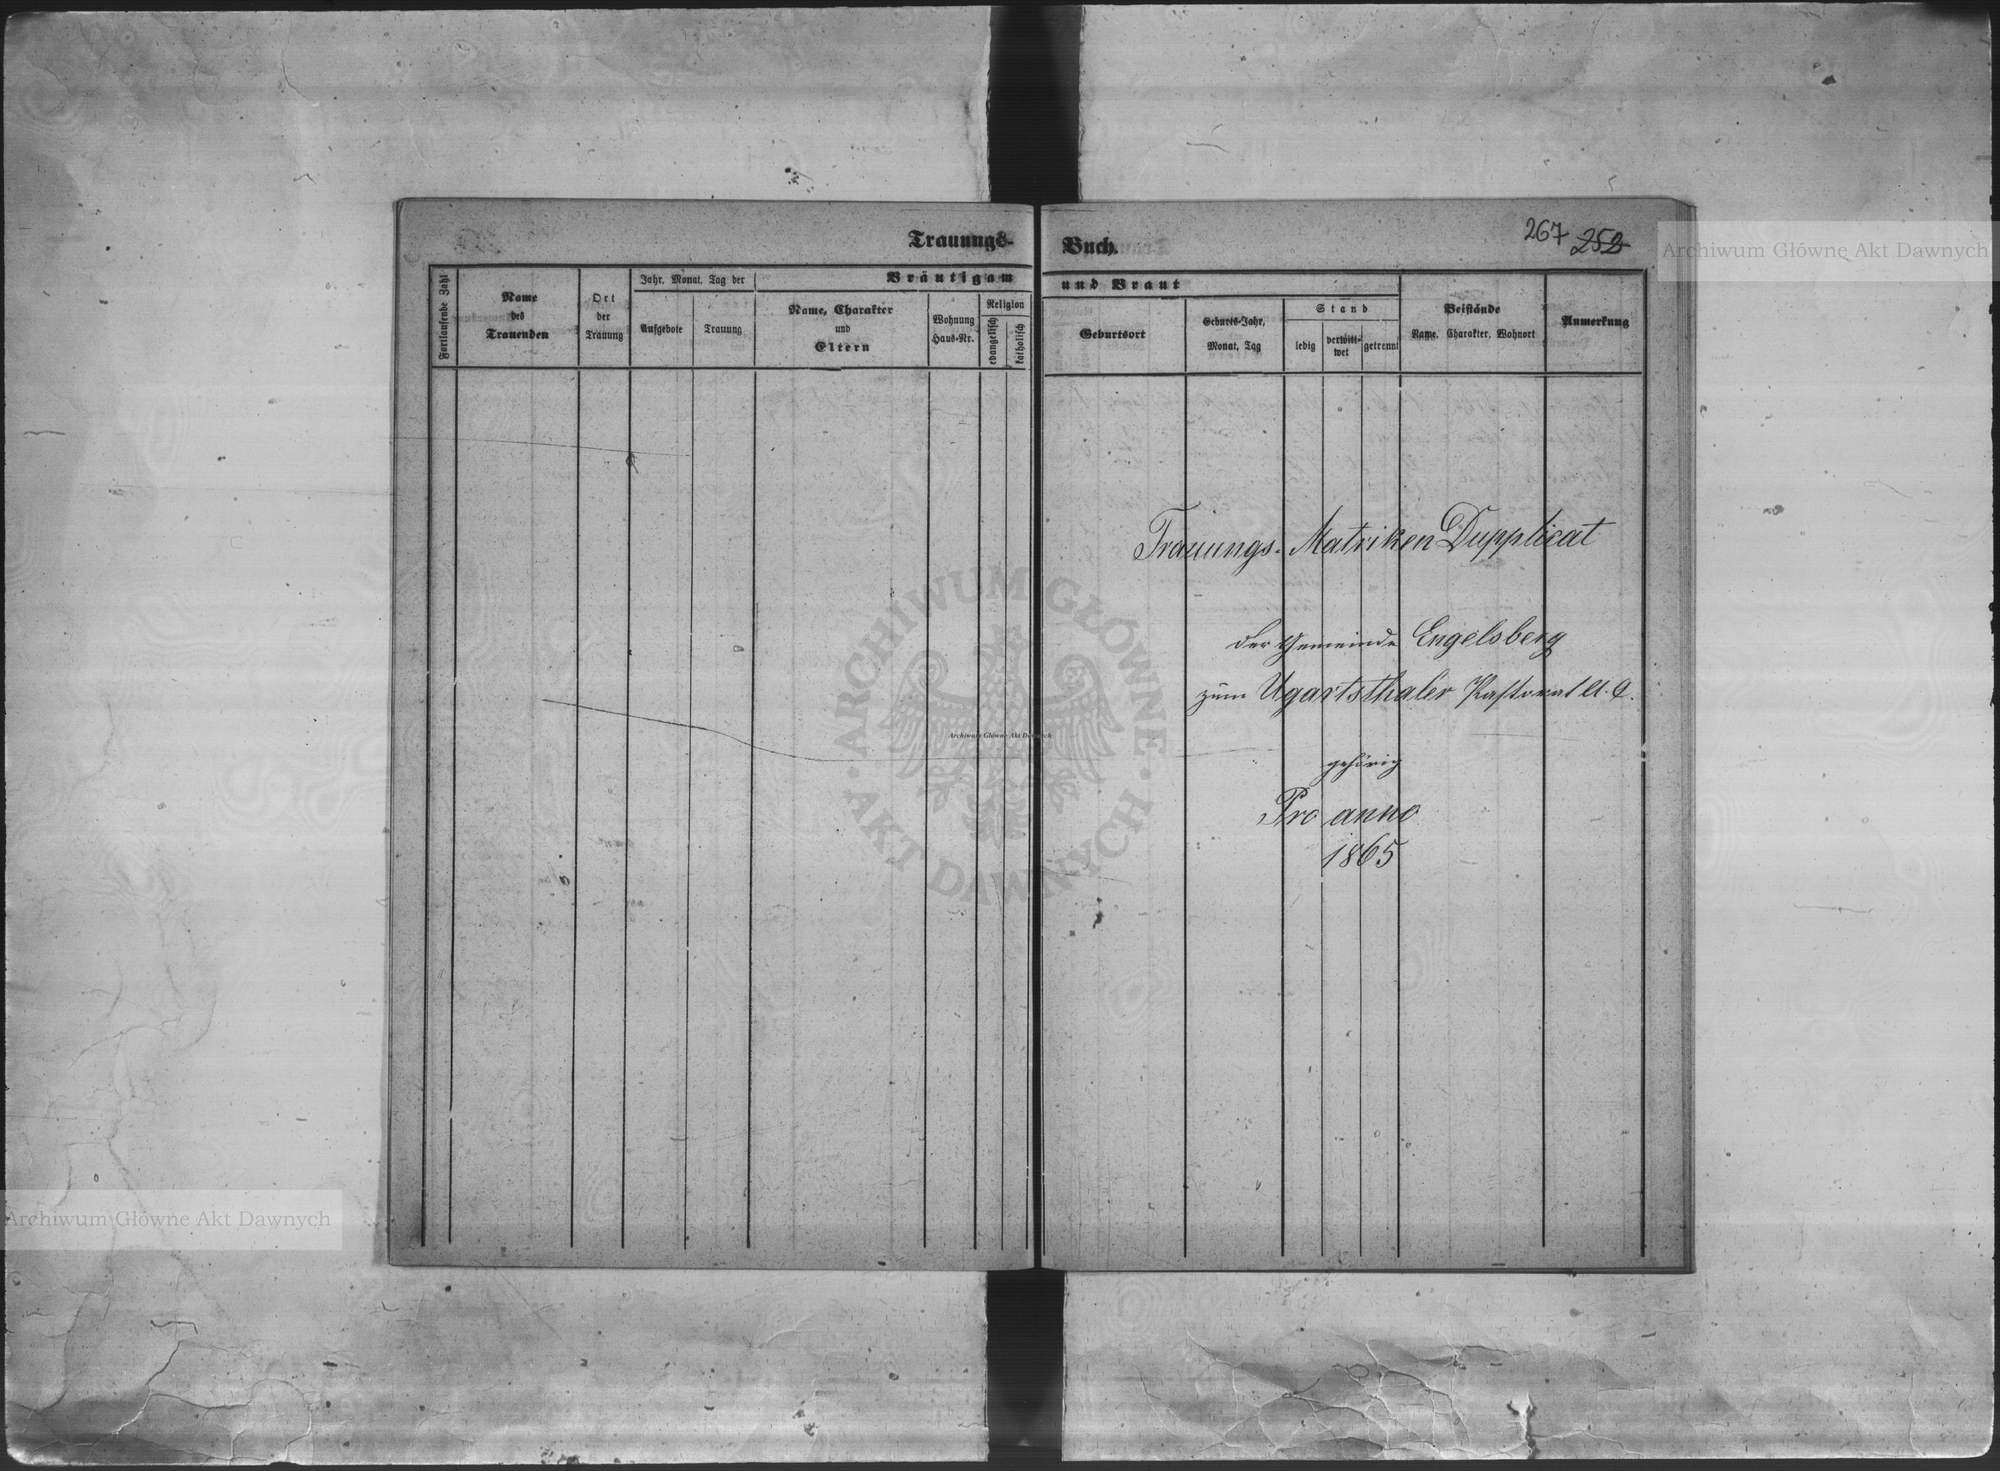 Trauungs-
Fortlaufende Zahl
Name
des
Trauenden
Ort
der
Trauung
Jahr. Monat, Tag der
Aufgebote
Trauung
Bräutigam
Name, Charakter
und
Eltern
Wohnung
Haus-Nr.
Religion
evangelisch
katholisch
Buch.
267 252
und Braut
Geburtsort
Geburts-Jahr,
Monat, Tag
Stand
ledig
verwitt-
wet
getrennt
Beistände
Name. Charakter, Wohnort
Anmerkung
Trauungs-Matriken Dupplicat
der Gemeinde Engelsberg
zum Ugartsthaler Pastorat A. C.
gehörig
Pro anno
1865
Archiwum Główne Akt Dawnych
ARCHIWUM GŁÓWNE
· AKT DAWNYCH ·
Archiwum Główne Akt Dawnych
Archiwum Główne Akt Dawnych